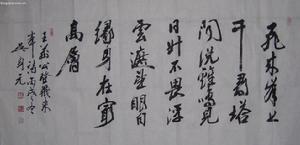 飛來峰上
千尋塔
聞說雞鳴見
日升不畏浮
雲遮望眼自
緣身在最
高層
王安石登飛來
峰詩丙戌冬